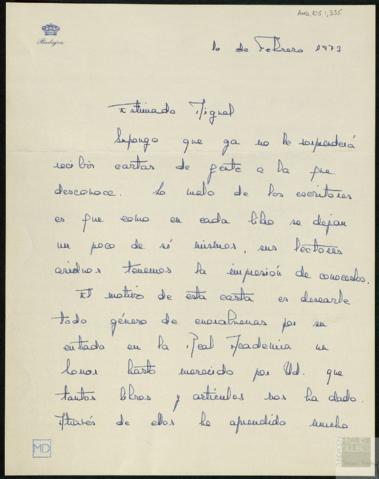 AMD,105,1,335
Badajoz
10 de Febrero 1973
Estimado Miguel
Supongo que ya no le sorprenderá
recibir cartas de gente a la que
desconoce. Lo malo de los escritores
es que como en cada libro se dejan
un poco de sí mismos, sus lectores
asiduos tenemos la impresión de conocerlos.
El motivo de esta carta es desearle
todo género de enorabuenas por su
entrada en la Real Academia un
honor harto merecido por Ud. que
tantos libros y artículos nos ha dado.
Através de ellos he aprendido mucho
MD